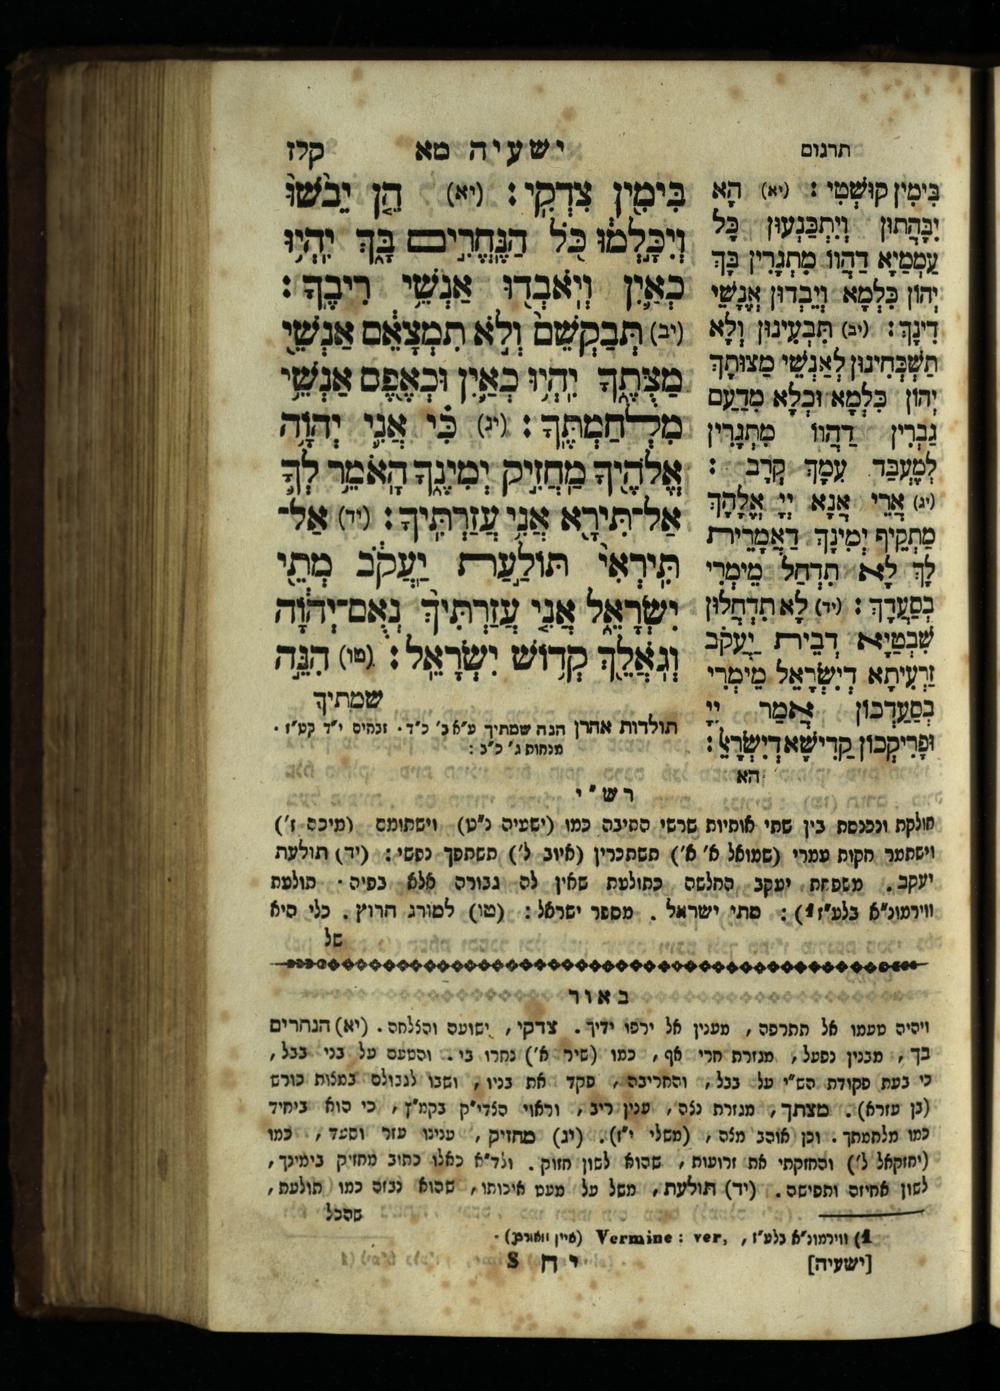 תרגום
ישעיה מא
קלז
בִּימִין קוּשְׁטִי : (יא) הָא
יִבַּהֲתוּן וְיִתְכַּנְעוּן כָּל
עַמְמַיָא דַהֲווֹ מִתְגָרִין בָּךְ
יְהוֹן כְּלָמָא וְיֵבְדוּן אֱנָשֵׁי
דִינָךְ : (יב) תִּבְעֵינוּן וְלָא
תַשְׁכְּחִינוּן לְאֵנְשֵׁי מַצוּתָךְ
יְהוֹן כִּלְמָא וּכְלָא מִדַעַם
גַבְרִין דַהֲווֹ מִתְגָרִין
לְמֶעְבַּד עִמָךְ קְרָב :
(יג) אֲרֵי אֲנָא יְיָ אֱלָהָךְ
מַתְקֵיף יְמִינָךְ דַאֲמָרֵית
לָךְ לָא תִדְחַל מֵימְרִי
בְסַעֲדָךְ : (יד) לָא תִדְחֲלוּן
שִׁבְטַיָא דְבֵית יַעֲקֹב
זַרְעִיתָא דְיִשְׂרָאֵל מֵימְרִי
בְסַעֲדְכוֹן אֲמַר יְיָ
וּפָרִיקְכוֹן קַדִישָׁא דְיִשְׂרָאֵל :
הא
בִּימִין צִדְקִי : (יא) הֵן יֵבֹשׁוּ
וְיִכָּלְמוּ כֹּל הַנֶּחֱרִים בָּךְ יִהְיוּ
כְאַיִן וְיֹאבְדוּ אַנְשֵׁי רִיבֶךָ :
(יב) תְּבַקְשֵׁם וְלֹא תִמְצָאֵם אַנְשֵׁי
מַצֻּתֶךָ יִהְיוּ כְאַיִן וּכְאֶפֶס אַנְשֵׁי
מִלְחַמְתֶּךָ : (יג) כִּי אֲנִי יְהוָֹה
אֱלֹהֶיךָ מַחֲזִיק יְמִינֶךָ הָאֹמֵר לְךָ
אַל־תִּירָא אֲנִי עֲזַרְתִּיךָ : (יד) אַל־
תִּירְאִי תּוֹלַעַת יַעֲקֹב מְתֵי
יִשְׂרָאֵל אֲנִי עֲזַרְתִּיךְ נְאֻם־יְהוָֹה
וְגֹאֲלֵךְ קְדוֹשׁ יִשְׂרָאֵל : (טו) הִנֵּה
שמתיך
תולדות אהרן הנה שמתיך ע״א ב׳ כ״ד . זבחים י״ד קט״ז .
מנחות ג׳ כ״ב :
רש״י
חולקת ונכנסת בין שתי אותיות שרשי התיבה כמו (ישעיה נ״ט) וישתומם (מיכה ז׳)
וישתמר חקות עמרי (שמואל א׳ א׳) תשתכרין (איוב ל׳) תשתפך נפשי : (יד) תולעת
יעקב . משפחת יעקב החלשה כתולעת שאין לה גבורה אלא בפיה . תולעת
ווירמונ״א בלע״ז 1) : מתי ישראל . מספר ישראל : (טו) למורג חרוץ . כלי היא
של
באור
ויהיה טעמו אל תתרפה , מענין אל ירפו ידיך . צדקי , ישועה והצלחה . (יא) הנחרים
בך , מבנין נפעל , מגזרת חרי אף , כמו (שיר א׳) נחרו בי . והטעם על בני בבל ,
כי בעת פקודת הש״י על בבל , והחריבה , פקד את בניו , ושבו לגבולם במצות כורש
(בן עזרא) . מצתך , מגזרת נצה , ענין ריב , וראוי הצדי״ק בקמ״ץ , כי הוא ביחיד
כמו מלחמתך . וכן אוהב מצה , (משלי י״ז) . (יג) מחזיק , ענינו עזר וסעד , כמו
(יחזקאל ל׳) והחזקתי את זרועות , שהוא לשון חזוק . ולד״א כאלו כתוב מחזיק בימינך ,
לשון אחיזה ותפישה . (יד) תולעת , משל על מעט איכותו , שהוא נבזה כמו תולעת ,
שהכל
1) ווירמונ״א בלע״ז , Vermine : ver, (איין וואורם) .
[ישעיה]
יח S